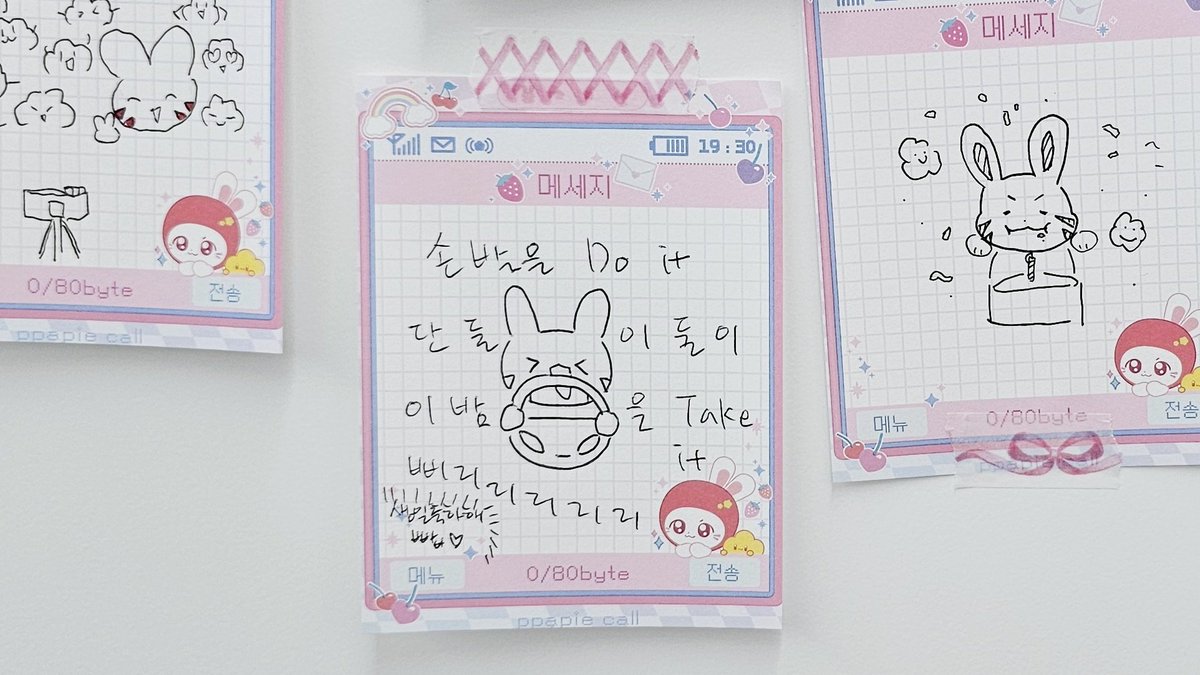 0/80byte
전송
ppapie call
19:30
메세지
손발을 Do it
단둘이 둘이
이밤을 Take
it
삐리리리리리
생일축하해
빱♡
메뉴 0/80byte 전송
ppapie call
메세지
메뉴 0/80byte 전송